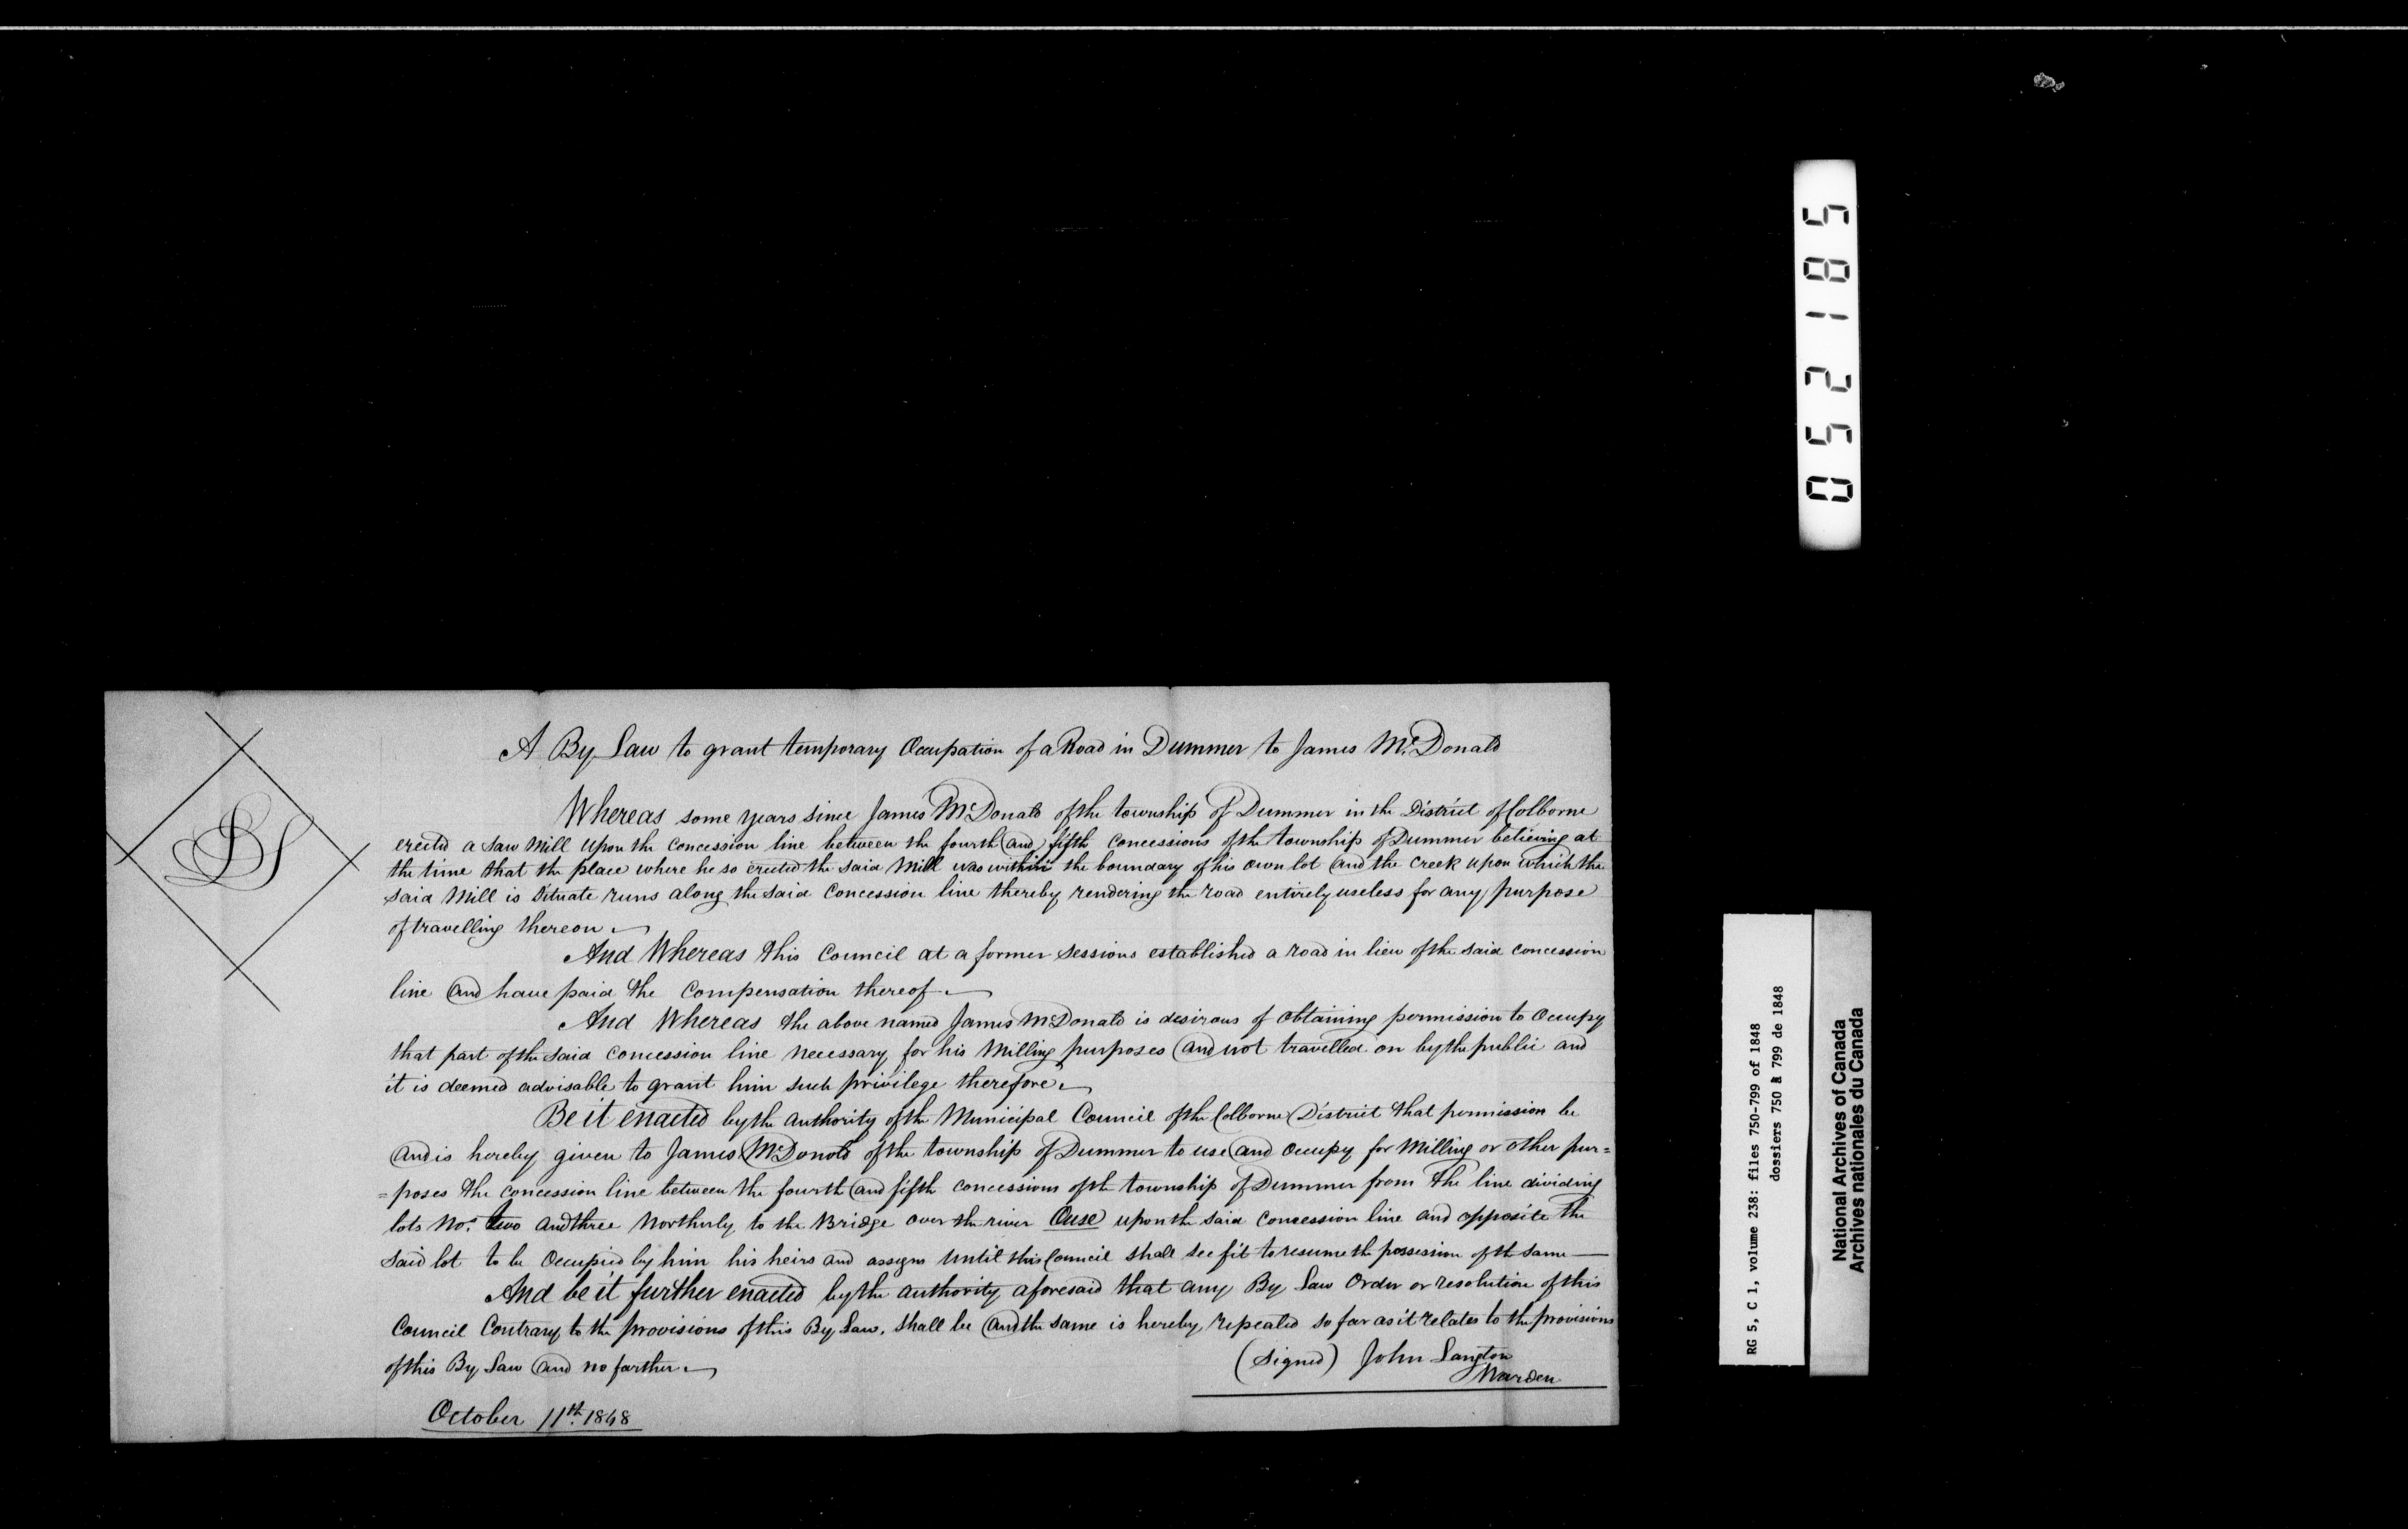 A By Law to grant temporary Occupation of a Road in Dummer to James McDonald
Whereas some years since James McDonald of the township of Dummer in the District of Colborne
erected a Saw Mill upon the concession line between the fourth and fifth concessions of the township of Dummer believing at
the time that the place where he so erected the said Mill was within the boundary of his own lot and the Creek upon which the
said Mill is Situate runs along the said Concession line thereby rendering the road entirely useless for any purpose
of travelling thereon
And Whereas this Council at a former Sessions established a road in lieu of the said concession
line and have paid the Compensation thereof
And Whereas the above named James McDonald is desirous of obtaining permission to Occupy
that part of the said concession line necessary for his Milling purposes and not travelled on by the public and
it is deemed advisable to grant him such privilege therefore
Be it enacted by the Authority of the Municipal Council of the Colborne District that permission be
and is hereby given to James McDonold of the township of Dummer to use and occupy for Milling or other pur=
=poses the concession line between the fourth and fifth concessions of the township of Dummer from the line dividing
lots Nos. two and three Northerly to the Bridge over the river Ouse upon the said concession line and opposite the
said lot to be Occupied by him his heirs and assigns Until this Council shall see fit to resume the possession of the same
And be it further enacted by the authority aforesaid that any By Law Order or resolution of this
Council Contrary to the provisions of this By Law, shall be and the same is hereby repealed so far as it relates to the provisions
of this By Law and no farther
(Signed) John Langton
Warden
October 11th. 1848
LS
052185
RG 5, C 1, volume 238: files 750-799 of 1848
dossiers 750 à 799 de 1848
National Archives of Canada
Archives nationales du Canada